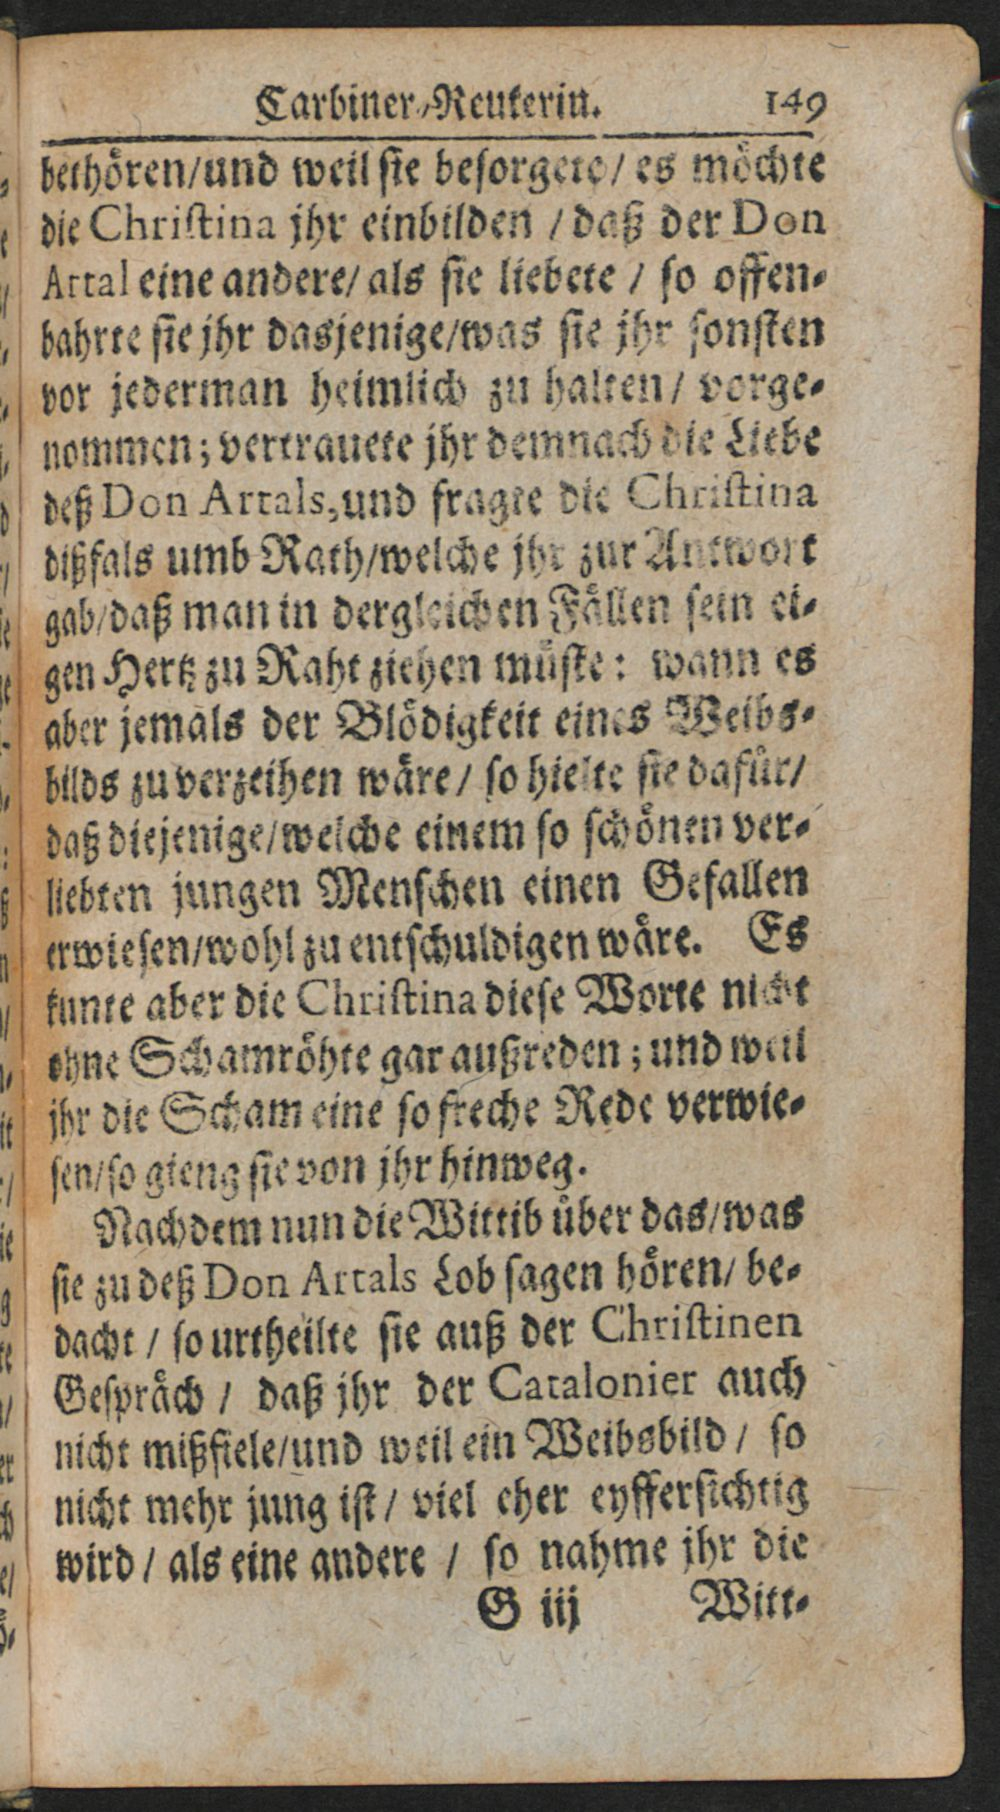 Carbiner-Reuterin. 149
bethören/und weil sie besorgete/ es möchte
die Christina jhr einbilden / daß der Don
Artal eine andere/ als sie liebete / so offen-
bahrte sie jhr dasjenige/was sie jhr sonsten
vor jederman heimlich zu halten / vorge-
nommen; vertrauete jhr demnach die Liebe
deß Don Artals, und fragte die Christina
dißfals umb Rath/welche jhr zur Antwort
gab/daß man in dergleichen Fällen sein ei-
gen Hertz zu Raht ziehen müste: wann es
aber jemals der Blödigkeit eines Weibs-
bilds zu verzeihen wäre / so hielte sie dafür/
daß diejenige/welche einem so schönen ver-
liebten jungen Menschen einen Gefallen
erwiesen/wohl zu entschuldigen wäre. Es
kunte aber die Christina diese Worte nicht
ohne Schamröhte gar außreden; und weil
jhr die Scham eine so freche Rede verwie-
sen/so gieng sie von jhr hinweg.
Nachdem nun die Wittib über das/was
sie zu deß Don Artals Lob sagen hören/ be-
dacht / so urtheilte sie auß der Christinen
Gespräch / daß jhr der Catalonier auch
nicht mißfiele/und weil ein Weibsbild / so
nicht mehr jung ist / viel eher eyffersichtig
wird / als eine andere / so nahme jhr die
G iij Witt-